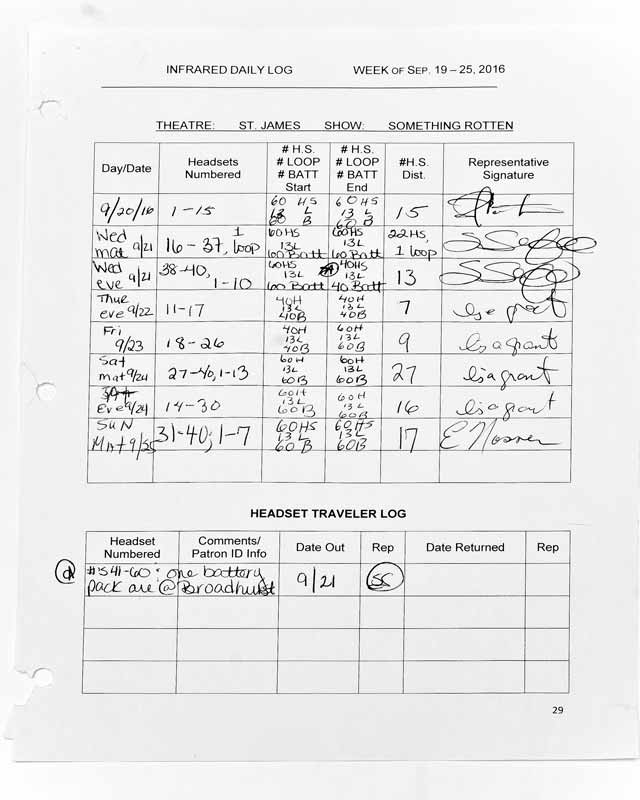 INFRARED DAILY LOG WEEK OF SEP. 19 – 25, 2016
THEATRE: ST. JAMES SHOW: SOMETHING ROTTEN
Day/Date Headsets Numbered # H.S. # LOOP # BATT Start # H.S. # LOOP # BATT End #H.S. Dist. Representative Signature
9/20/16 1-15 60 HS 13 L 60 B 60 HS 13 L 60 B 15
Wed mat 9/21 16-37, 1 loop 60HS 13L 60 Batt 60HS 13L 60 Batt 22HS, 1 loop
Wed eve 9/21 38-40, 1-10 60HS 13L 60 Batt 40HS 13L 40 Batt 13
Thur eve 9/22 11-17 40H 13L 40B 40H 13L 40B 7 lisa grant
Fri 9/23 18-26 40H 13L 40B 60H 13L 60B 9 lisa grant
Sat mat 9/24 27-40, 1-13 60H 13L 60B 60H 13L 60B 27 lisa grant
SAt Eve 9/24 14-30 60H 13L 60B 60H 13L 60B 16 lisa grant
SuN Mat 9/25 31-40; 1-7 60HS 13L 60B 60HS 13L 60B 17
HEADSET TRAVELER LOG
Headset Numbered Comments/ Patron ID Info Date Out Rep Date Returned Rep
#'s 41-60: one battery
pack are @ Broadhurst 9/21 SC
29